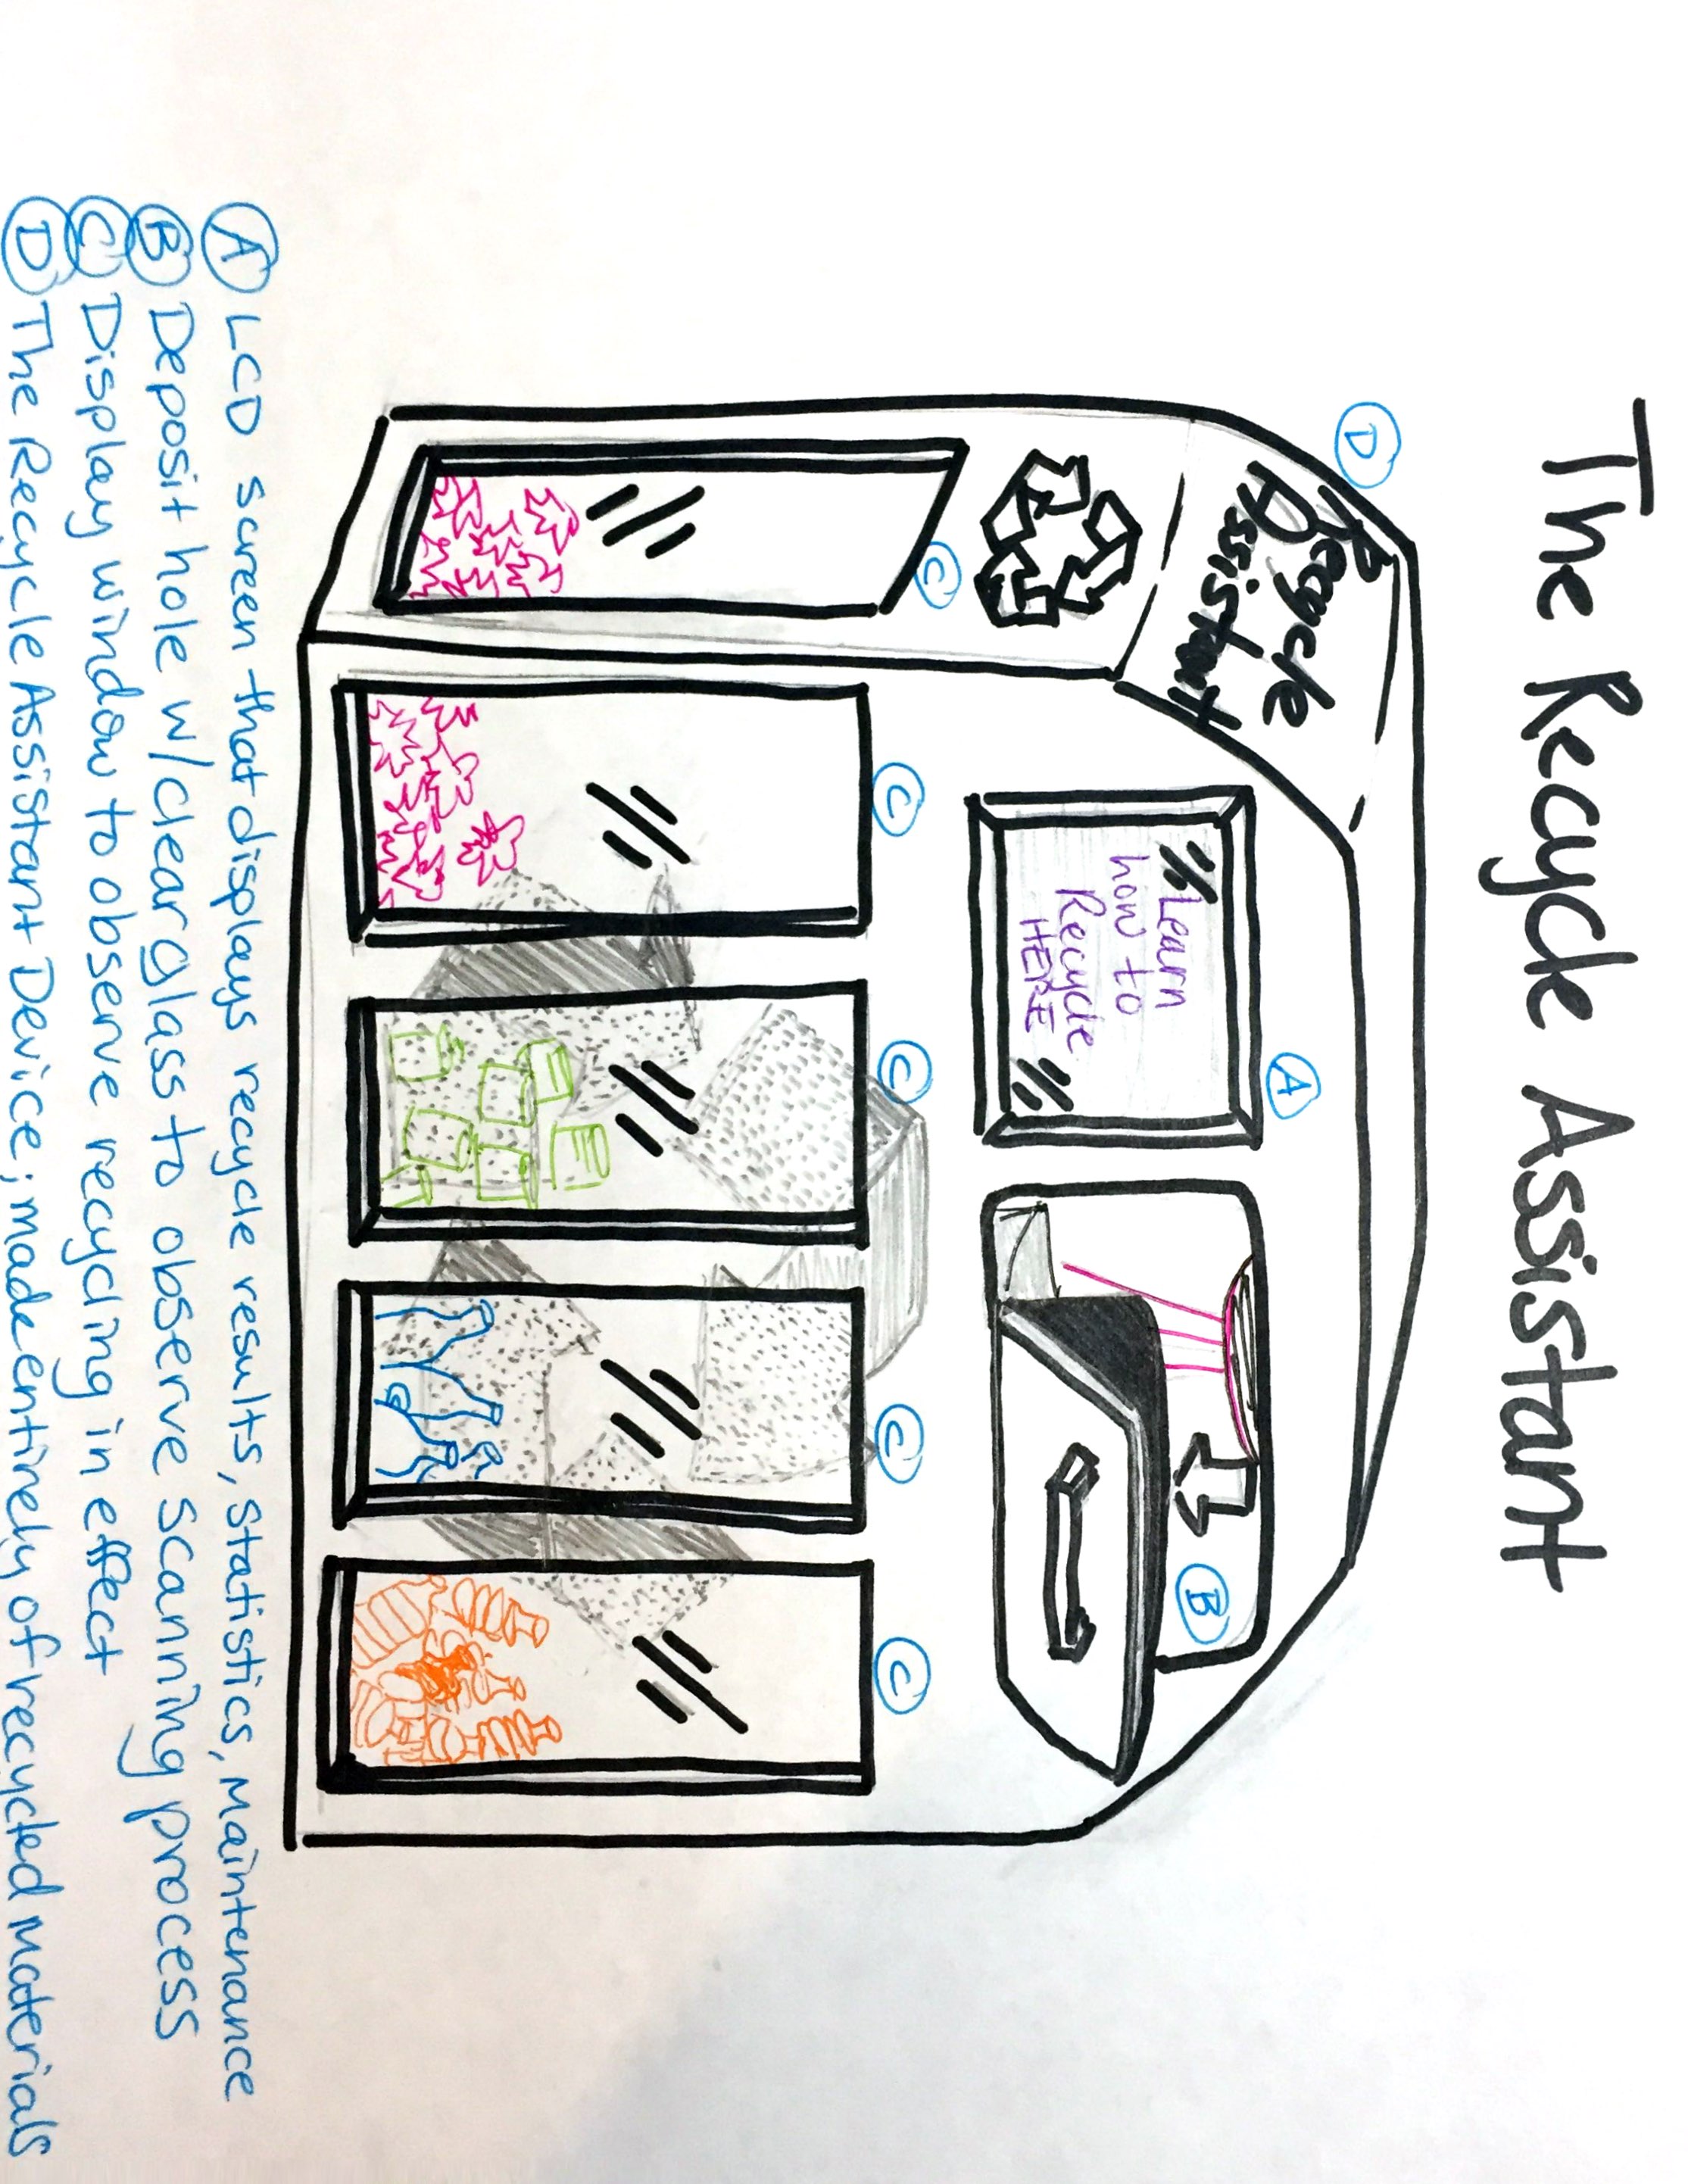 The Recycle Assistant
D
Recycle
Assistant
A
Learn
how to
Recycle
HERE
B
C
C
C
C
C
A LCD screen that displays recycle results, statistics, maintenance
B Deposit hole w/clear glass to observe scanning process
C Display window to observe recycling in effect
D The Recycle Assistant Device; made entirely of recycled materials